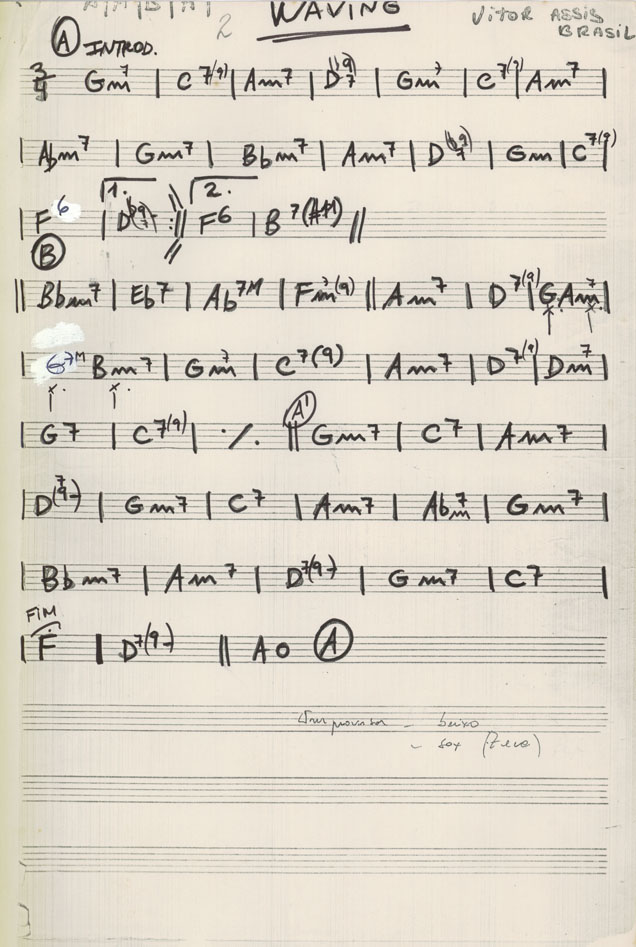 A/A/B/A'/
2
WAVING
VITOR ASSIS BRASIL
A INTROD.
3/4 Gm7 | C7(9) | Am7 | D(b9)7 | Gm7 | C7(9) | Am7
| Abm7 | Gm7 | Bbm7 | Am7 | D(b9)7 | Gm | C7(9) |
1. 2.
| F6 | D(b9)7 :|| F6 | B7(#11) ||
B
|| Bbm7 | Eb7 | Ab7M | Fm7(9) || Am7 | D7(9) | G Am7 |
G7M Bm7 | Gm7 | C7(9) | Am7 | D7(9) | Dm7 |
x. x.
A'
| G7 | C7(9) | ٪ || Gm7 | C7 | Am7 |
| D(7 9-) | Gm7 | C7 | Am7 | Abm7 | Gm7 |
| Bbm7 | Am7 | D7(9-) | Gm7 | C7 |
FIM
| F | D7(9-) || AO A
Improvisar - baixo
- sax (Zeca)